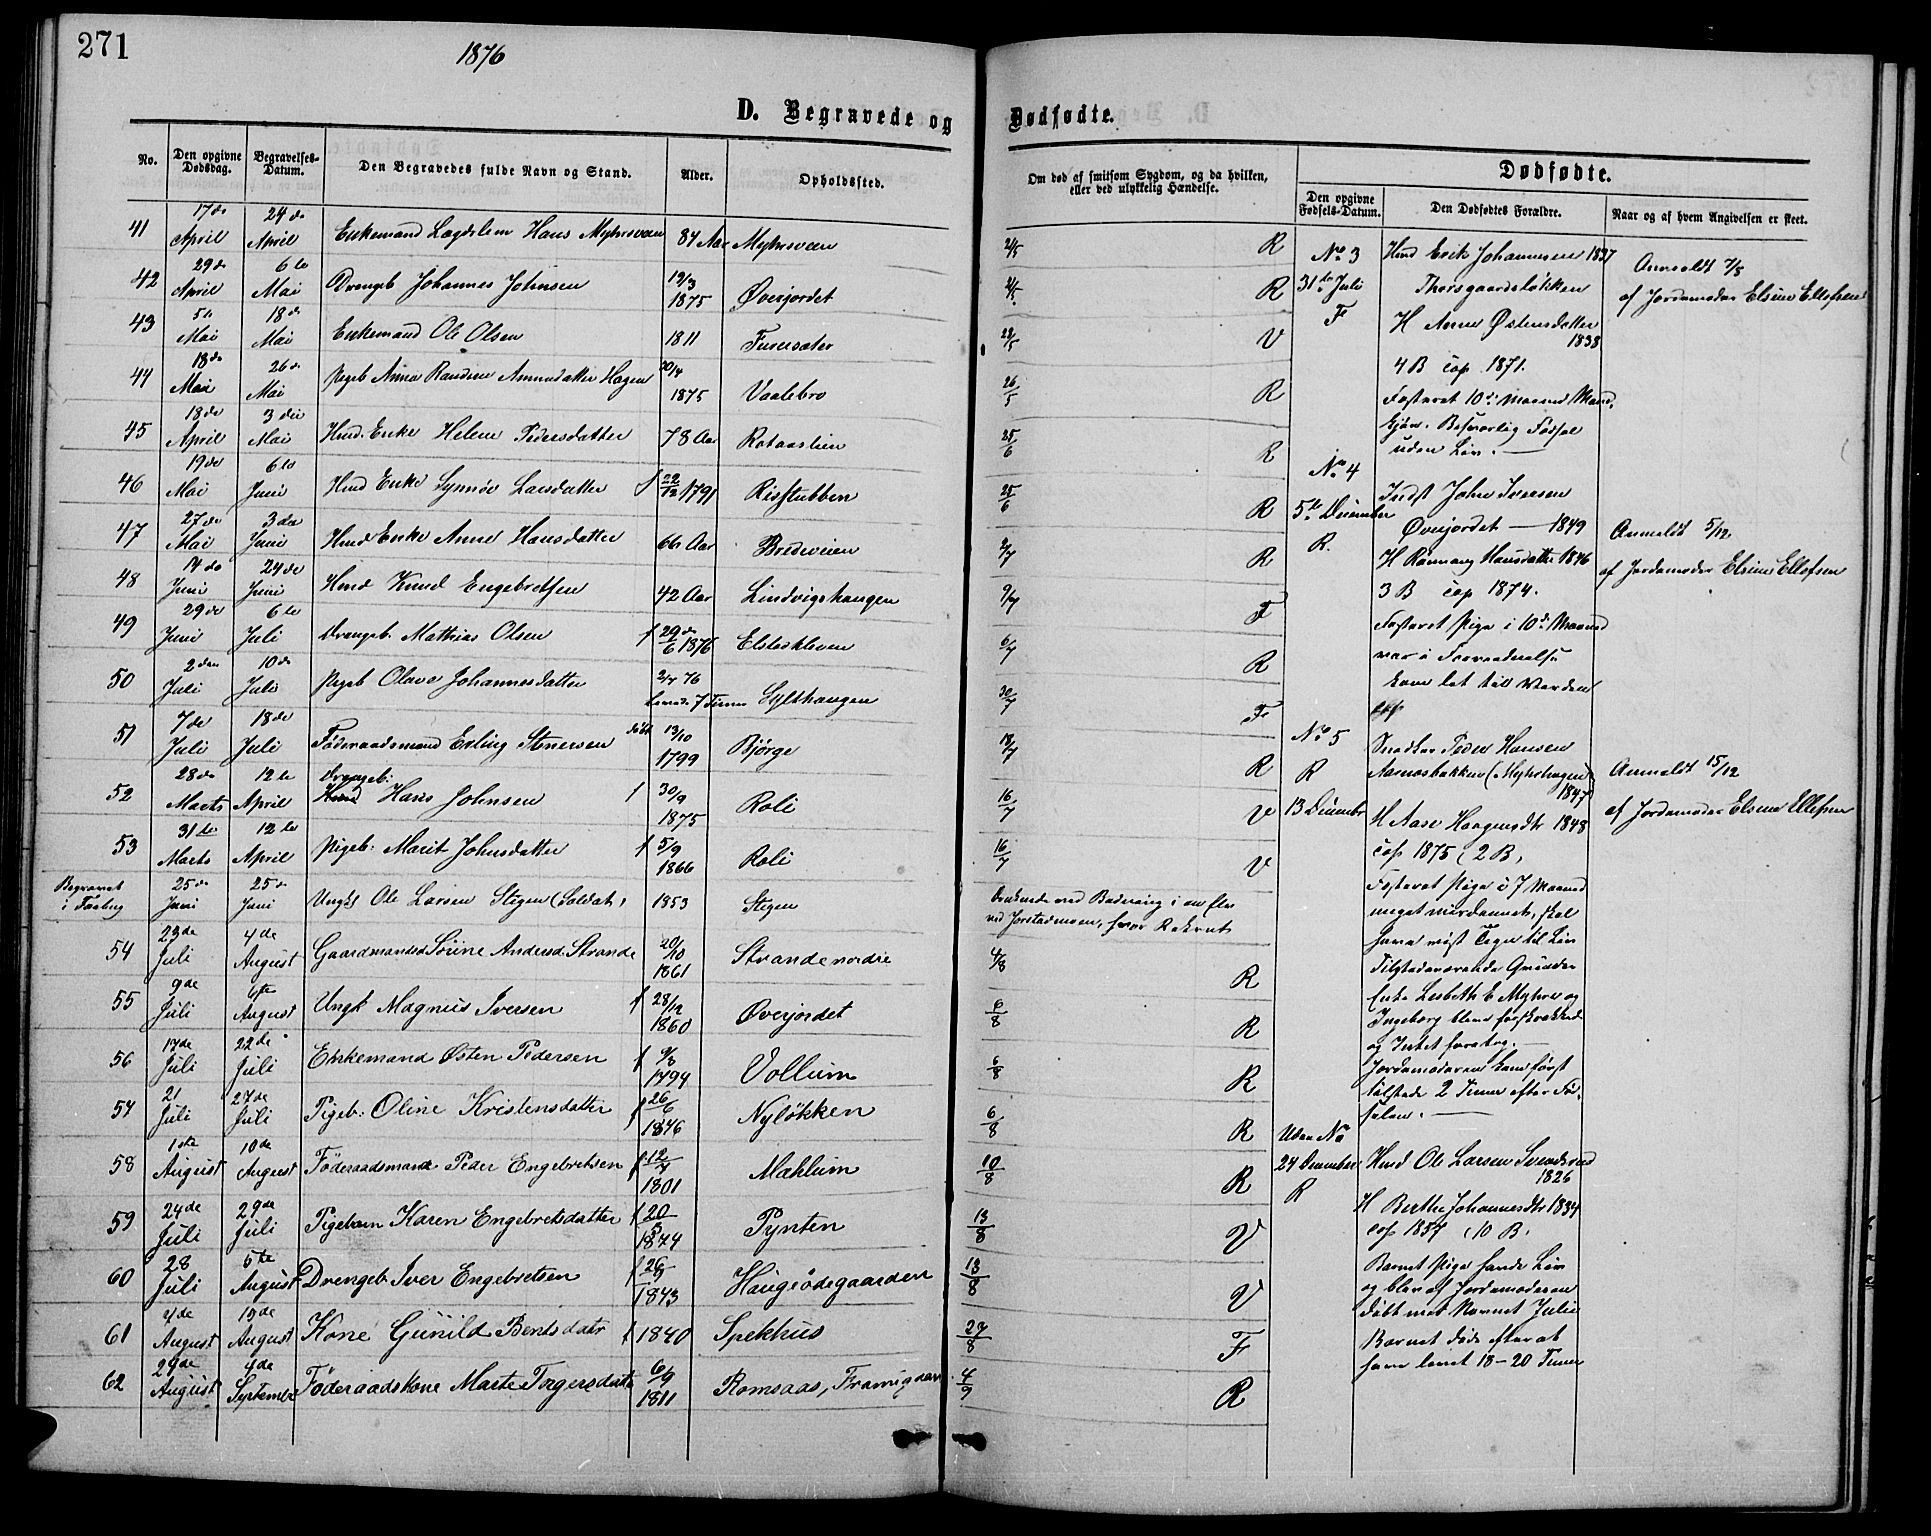 271
1876
D. Begravede og Dødfødte.
No.
Den opgivne Dødsdag.
Begravelses-Datum.
Den Begravedes fulde Navn og Stand.
Alder.
Opholdssted.
Om død af smitsom Sygdom, og da hvilken, eller ved ulykkelig Hændelse.
Dødfødte.
Den opgivne Fødsels-Datum.
Den Dødfødtes Forældre.
Naar og af hvem Angivelsen er skeet.
41 17de April 24de April Enkemand Lægdslem Hans Myhrsveen 84 Aar Myhrsveen 24/5 R
42 29de April 6te Mai Drengeb Johannes Johnsen 19/3 1875 Øverjordet R
43 5te Mai 18de Mai Enkemand Ole Olsen 1811 Furusæter 23/5 V
44 18de Mai 26de Mai Pigeb Anna Randine Amundatter Hagen 20/4 1875 Vaalebro 26/5 R
45 18de April 3die Mai Hmd. Enke Helene Pedersdatter 78 Aar Rotaaslien 25/6 R
46 19de Mai 6te Juni Hmd Enke Synnøv Larsdatter f 22/12 1791 Risstubben 25/6 R
47 27de Mai 3die Juni Hmd Enke Anne Hansdatter 66 Aar Bredeveien 2/7 R
48 14de Juni 24de Juni Hmd Knud Engebretsen 42 Aar Lindvigshaugen 9/7 F
49 29de Juni 6te Juli Drengeb. Mathias Olsen f 29de/6 1876 Elstadkleven 6/7 R
50 2den Juli 10de Juli Pigeb Olava Johannesdatter 2/7 76 levede 7 Timer Sylthaugen 30/7 F
51 7de Juli 18de Juli Føderaadsmand Erling Stenersen døbt 13/10 1799 Bjørge 18/7 R
52 28de Marts 12te April Drengeb: Hans Johnsen f 30/9 1875 Roli 16/7 V
53 31te Marts 12te April Pigeb: Marit Johnsdatter f 5/9 1866 Roli 16/7 V
Begravet i Faaberg 25de Juni 25de Juni Ungk Ole Larsen Stigen (Soldat) 1853 Stigen Druknede ved Badning i en Elv
ved Jørstadmoen, hvor Rekrut
54 23de Juli 4de August Gaardmandsd Sørine Andersd. Strande 20/10 1861 Strande nordre 4/8 R
55 9de Juli 6te August Ungk Magnus Iversen f 28/12 1860 Øverjordet 6/8 R
56 17de Juli 22de Juli Enkemand Østen Pedersen f 9/3 1794 Vollum 6/8 R
57 21 Juli 27de Juli Pigeb: Oline Kristensdatter f 26/6 1876 Nyløkken 6/8 R
58 1ste August 10de August Føderaadsmand Peder Engebretsen f 12/7 1801 Mæhlum 10/8 R
59 24de Juli 29de Juli Pigebarn Karen Engebretsdatter f 20/5 1874 Pynten 13/8 V
60 28 Juli 5te August Drengeb Iver Engebretsen f 26/9 1873 Haugsødegaarden 13/8 V
61 4de August 19de August Kone Gunild Bentsdatr f 1840 Spekhus 27/8 F
62 29de August 4de September Føderaadskone Marte Torgersdatter 6/9 1811 Romsaas, Framigaarn 4/9 R
No 3
31te Juli
F
Hmd Erik Johannesen 1837
Thorsgaardsløkken
H Anne Østensdatter
1838
4 B cop 1871.
Fosteret 10de Maaned Mand-
kjøn. Besværlig Fødsel
uden Liv. —
Anmeldt 7/8
af Jordemoder Elsine Ellefsen
No 4
5te December
R.
Indst John Iversen
Øverjordet — 1849
H Rønnaug Hansdatter 1846
3 B cop 1874.
Fosteret Pige i 10de Maaned
var i Forraadnelse
kom let til Verden
Anmeldt 5/12
af Jordemoder Elsine Ellefsen
No 5
R
13 December
Snedker Peder Hansen
Aarnæsbakken (Myhrhagen)
1847
H Aase Haagensdtr 1848
cop 1875 (2 B)
Fosteret Pige i 7 Maaned
meget misdannet, skal
have vist Tegn til Liv
Tilstedeværende Qvinder
Enke Lisbeth E Myhre og
Ingeborg bleve forskrækkede
og Intet foretog. —
Jordemoderen kom først
tilstede 2 Timer efter Fød-
selen. —
Anmeldt 15/12
af Jordemoder Elsine Ellefsen
Uden No
24 December
R
Hmd Ole Larsen Svendsrud
1826
H Berthe Johannesdtr 1834
cop 1857 (10 B.
Barnet Pige havde Liv
og blev af Jordemoderen
døbt med Navnet Julie
Barnet døde efter at
have levet 18–20 Timer